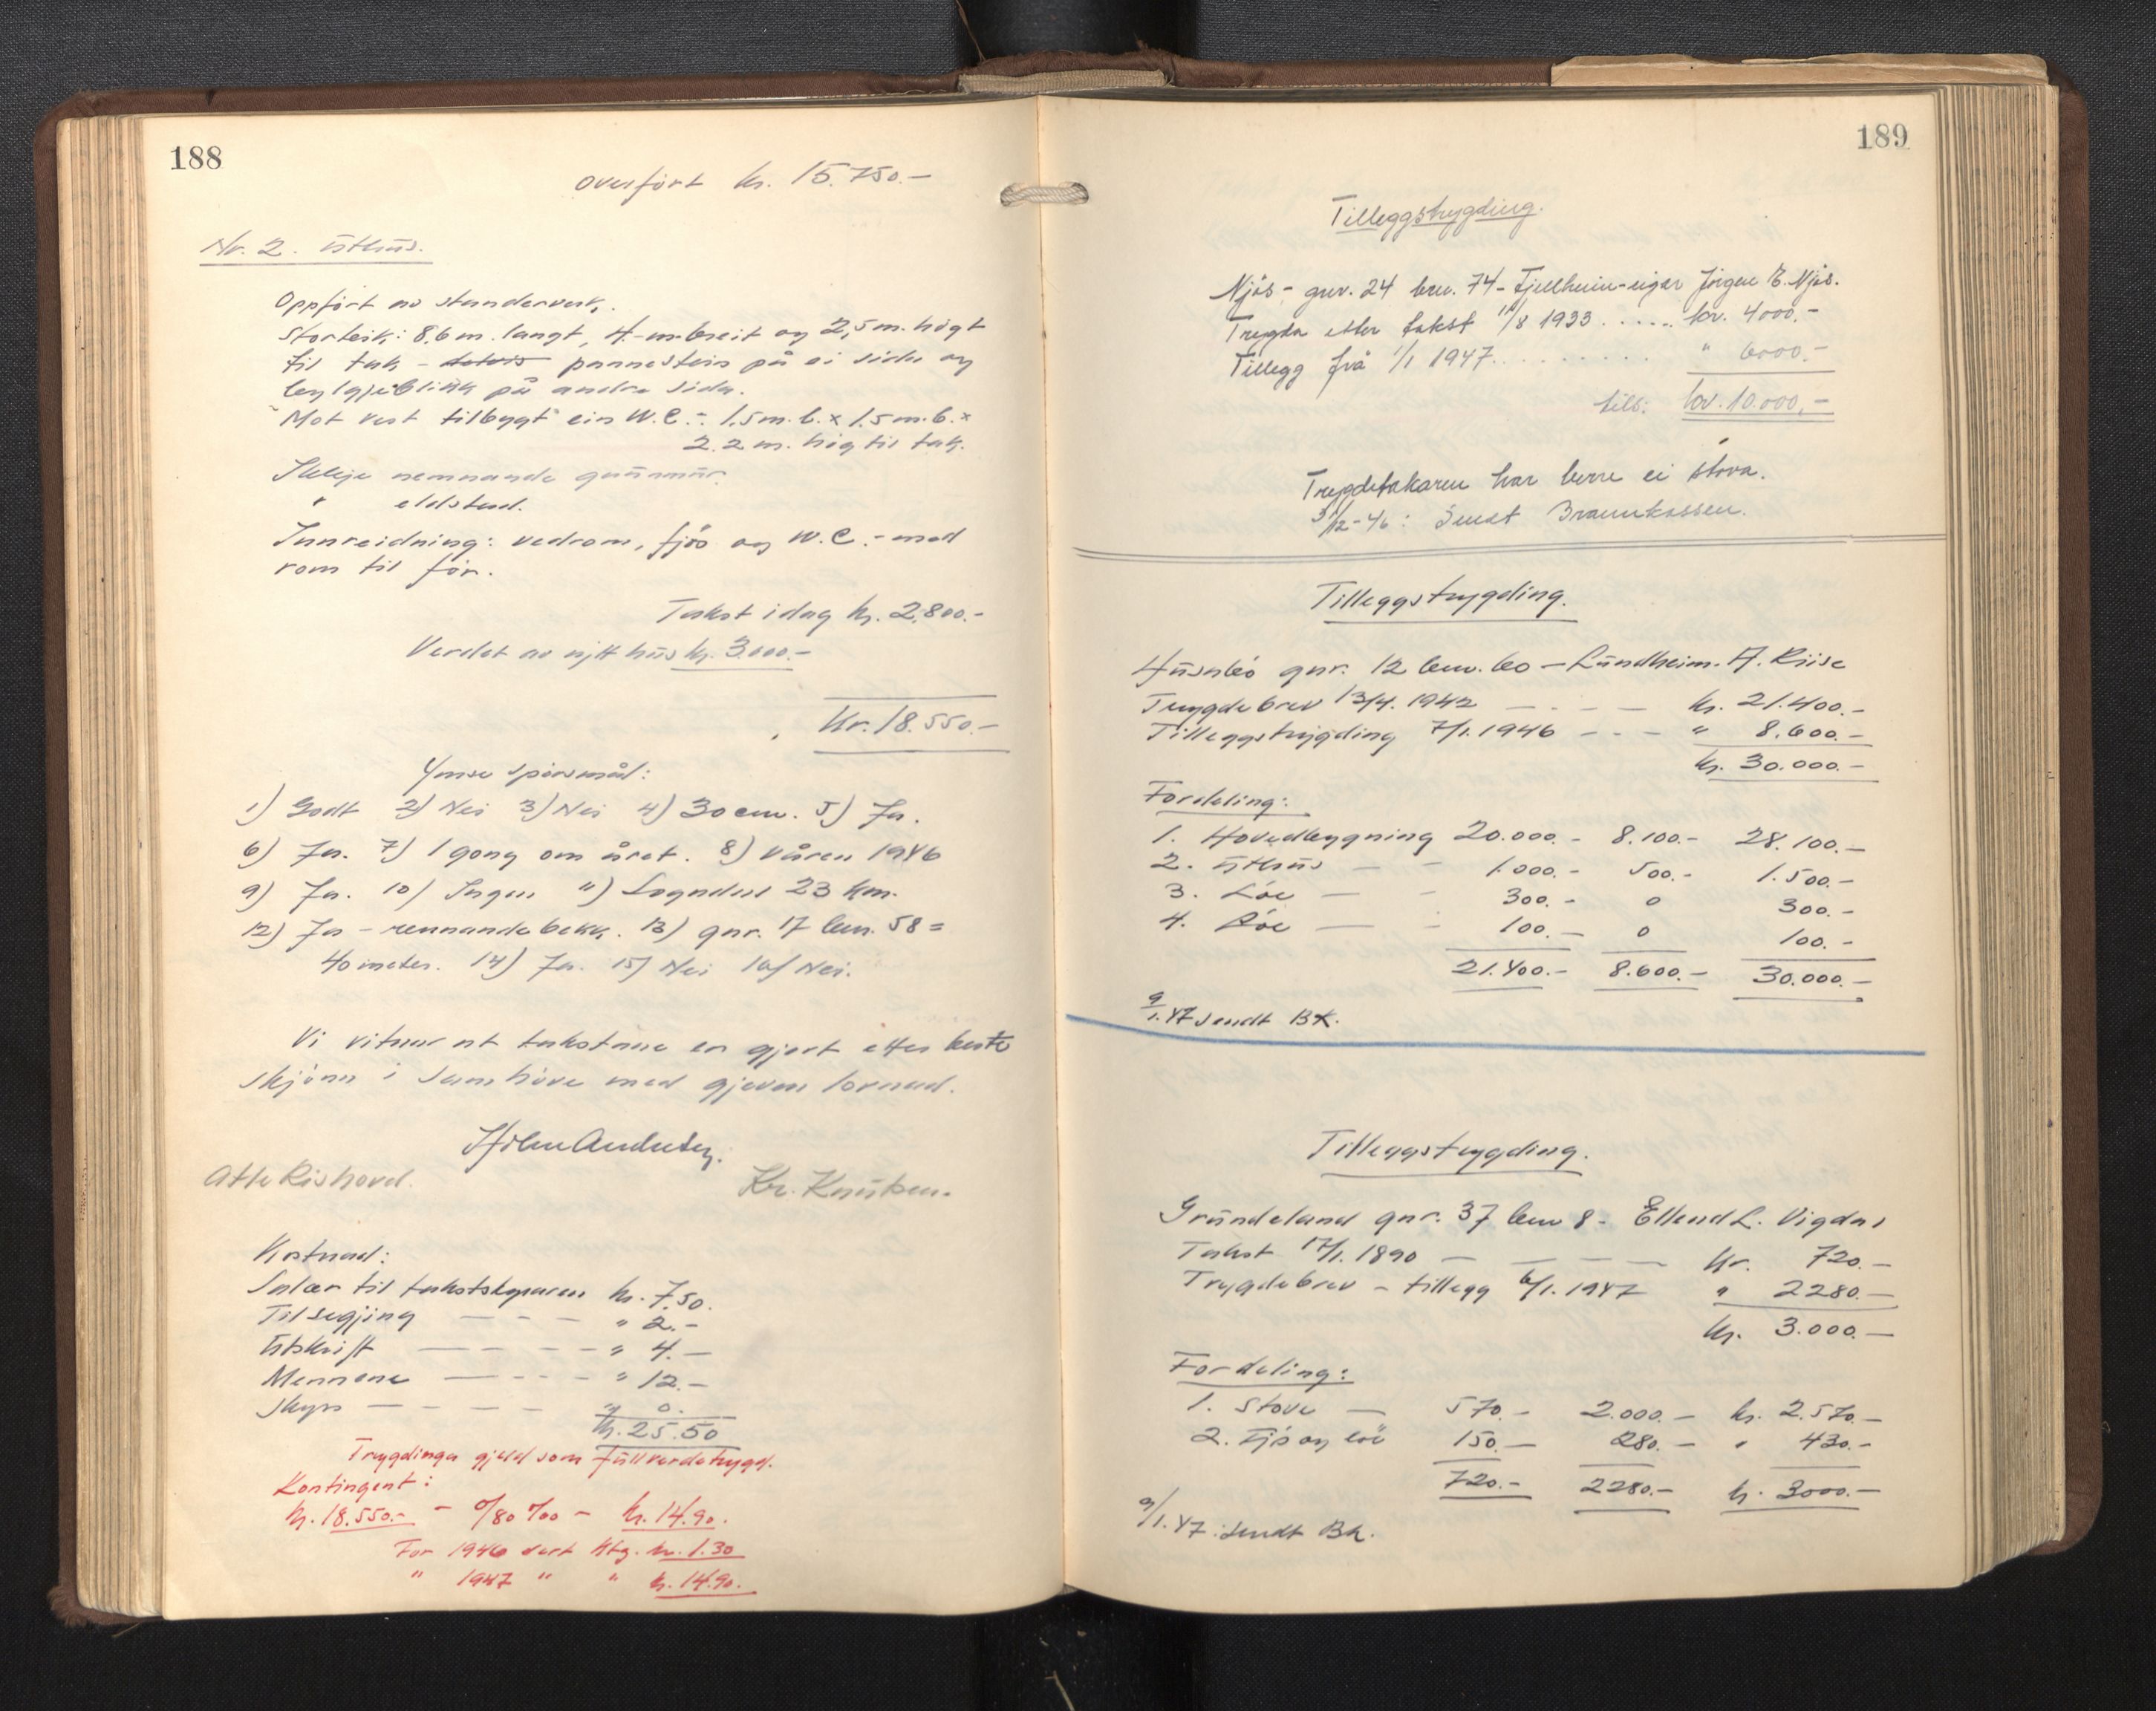 188
Overført kr. 15.750.-
Nr. 2. Uthus.
Oppført av standerverk.
Storleik: 8,6 m. langt, 4.- m. breit og 2,5 m. högt
til tak - delvis pannestein på ei side og
bylgjeblikk på andre sida.
Mot vest tilbygt ein W.C.: 1,5 m. l. x 1.5 m. b. x
2.2 m. høg til tak.
Ikkje nemnande grunnmur.
" eldstad.
Innreidning: vedrom, fjøs og W.C. - med
rom til før.
Takst idag kr. 2.800.-
Verdet av nytt hus kr. 3.000.-
Kr. 18.550.-
Ymse spørsmål:
1) Godt 2) Nei 3) Nei 4) 30 cm. 5) Ja.
6) Ja. 7) 1 gong om året. 8) Våren 1946
9) Ja. 10) Ingen 11) Sogndal 23 km.
12) Ja - rennande bekk. 13) gnr. 17 bnr. 58 =
40 meter. 14) Ja. 15) Nei 16) Nei.
Vi vitnar at takstane er gjort etter beste
skjönn i samhöve med gjeven lovnad.
Atle Rishovd. Kr. Knutsen.
Kostnad:
Salær til takstskynaren kr. 7.50.
Tilsegjing - - - " 2.-
Utskrift - - - - " 4.-
Mennene - - - - " 12.-
Skyss - - - - " 0.
Kr. 25.50
Trygdinga gjeld som fullverdetrygd.
Kontingent:
Kr. 18.550.- - 0/80 ‰ - kr. 14.90.
For 1946 vert ktg. kr. 1.30
" 1947 " " kr. 14.90.
189
Tilleggstrygding.
Njös - gnr. 24 bnr. 74 - Fjellheim - eigar Jörgen E. Njös.
Trygda etter takst 11/8 1933 ..... kr. 4000.-
Tillegg frå 1/1 1947 ......... " 6000.-
tils: kr. 10.000,-
Trygdetakaren har berre ei stova.
31/12-46: Sendt Brannkassen.
Tilleggstrygding.
Husabö gnr. 12 bnr. 60 - Lundheim. A. Riise
Trygdebrev 13/4. 1942 - - - - kr. 21.400.-
Tilleggstrygding 7/1. 1946 - - - " 8.600.-
kr. 30.000.-
Fordeling:
1. Hovedbygning 20.000.- 8.100.- 28.100.-
2. Uthus - - 1.000.- 500.- 1.500.-
3. Löe - - 300.- 0 300.-
4. Löe - - 100.- 0 100.-
21.400.- 8.600.- 30.000.-
9/1.47 sendt BK.
Tilleggstrygding.
Grundeland gnr. 37 bnr 8 - Ellend L. Vigdal
Takst 17/1. 1890 - - - - Kr. 720.-
Trygdebrev - tillegg 6/1. 1947 " 2280.-
Kr. 3.000.-
Fordeling:
1. Stove - 570.- 2.000.- kr. 2.570.-
2. Fjös og löe 150.- 280.- " 430.-
720.- 2280.- kr. 3000.-
9/1.47: sendt Bk.